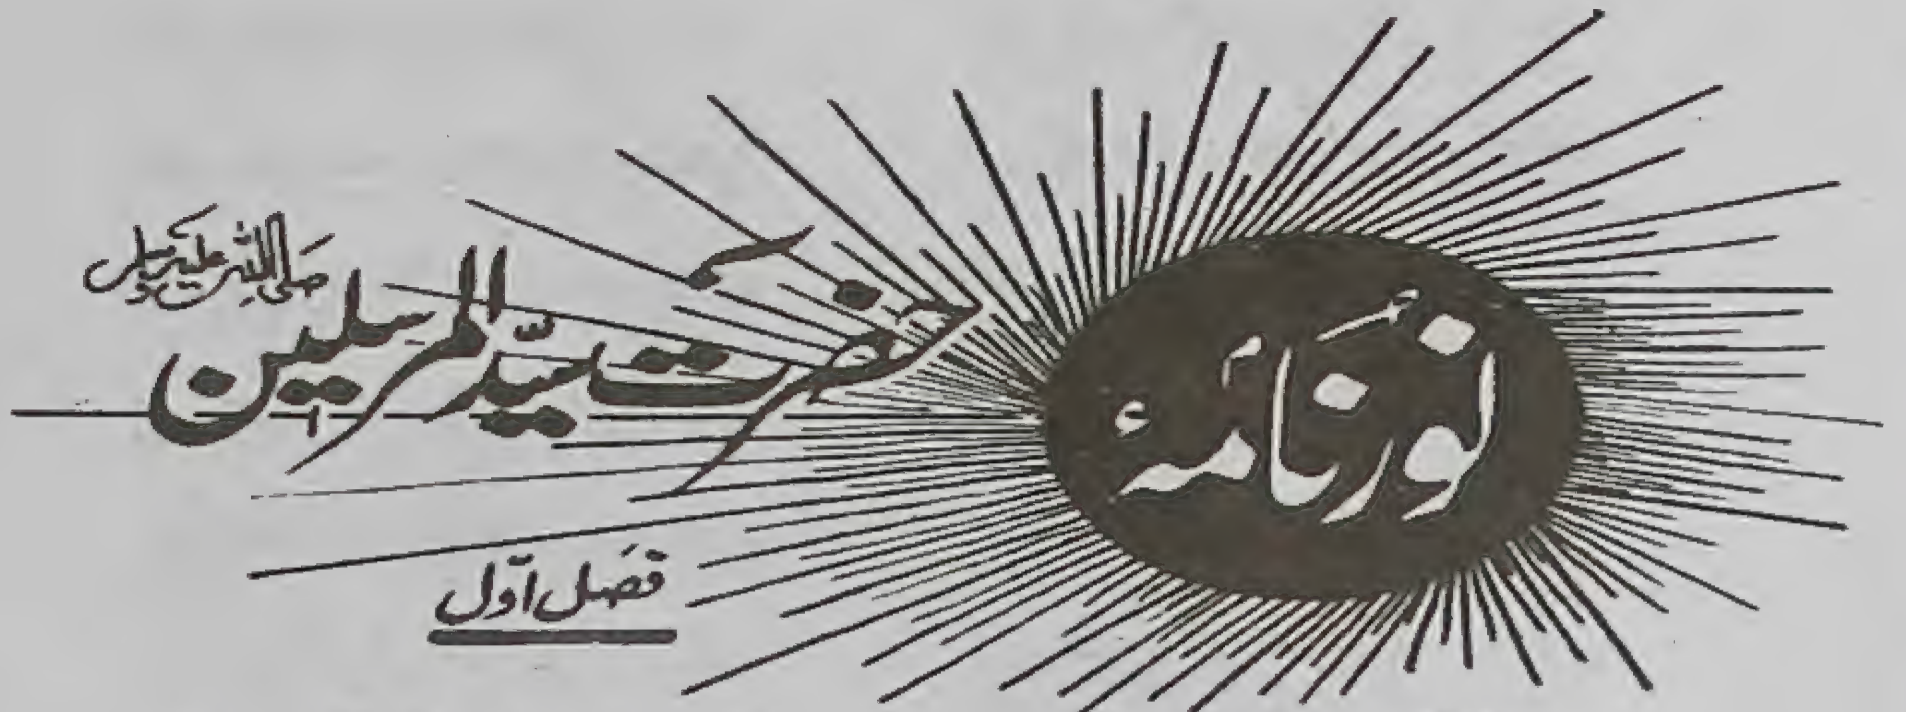 نُورنَامۂ
حضرت سیّد المرسلین صلی اللہ علیہ وسلم
فصل اوّل